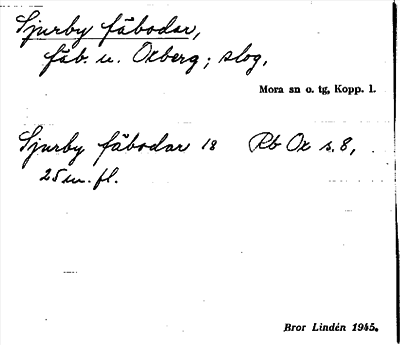 Sjurby fäbodar,
fäb. u. Oxberg; slog,
Mora sn o. tg, Kopp. l.
Sjurby fäbodar 18 Rb Ox s. 8,
25 m. fl.
Bror Lindén 1945.